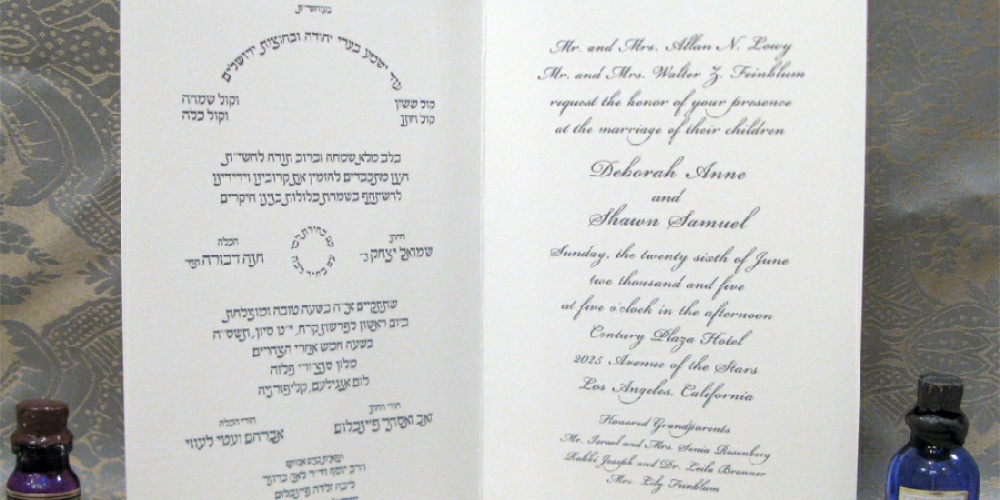 בעזהשי״ת
עוד ישמע בערי יהודה ובחוצות ירושלים
קול ששון
קול חתן
וקול שמחה
וקול כלה
בלב מלא שמחה וברוב תודה להשי״ת
הננו מתכבדים להזמין את קרובינו וידידינו
להשתתף בשמחת כלולות בנינו היקרים
החתן
שמואל יצחק
הכלה
חוה דבורה
שתתקיים אי״ה בשעה טובה ומוצלחת
ביום ראשון לפרשת קרח, י״ט סיון, תשס״ה
בשעה חמש אחרי הצהרים
מלון סנצ׳ורי פלזה
לוס אנג׳לעס, קליפורניה
הורי החתן
זאב ואסתר פיינבלום
הורי הכלה
אברהם ועטי לעווי
Mr. and Mrs. Allan N. Lowy
Mr. and Mrs. Walter Z. Feinblum
request the honor of your presence
at the marriage of their children
Deborah Anne
and
Shawn Samuel
Sunday, the twenty sixth of June
two thousand and five
at five o'clock in the afternoon
Century Plaza Hotel
2025 Avenue of the Stars
Los Angeles, California
Honored Grandparents
Mr. Israel and Mrs. Sonia Rosenberg
Rabbi Joseph and Dr. Leila Bronner
Mrs. Lily Feinblum